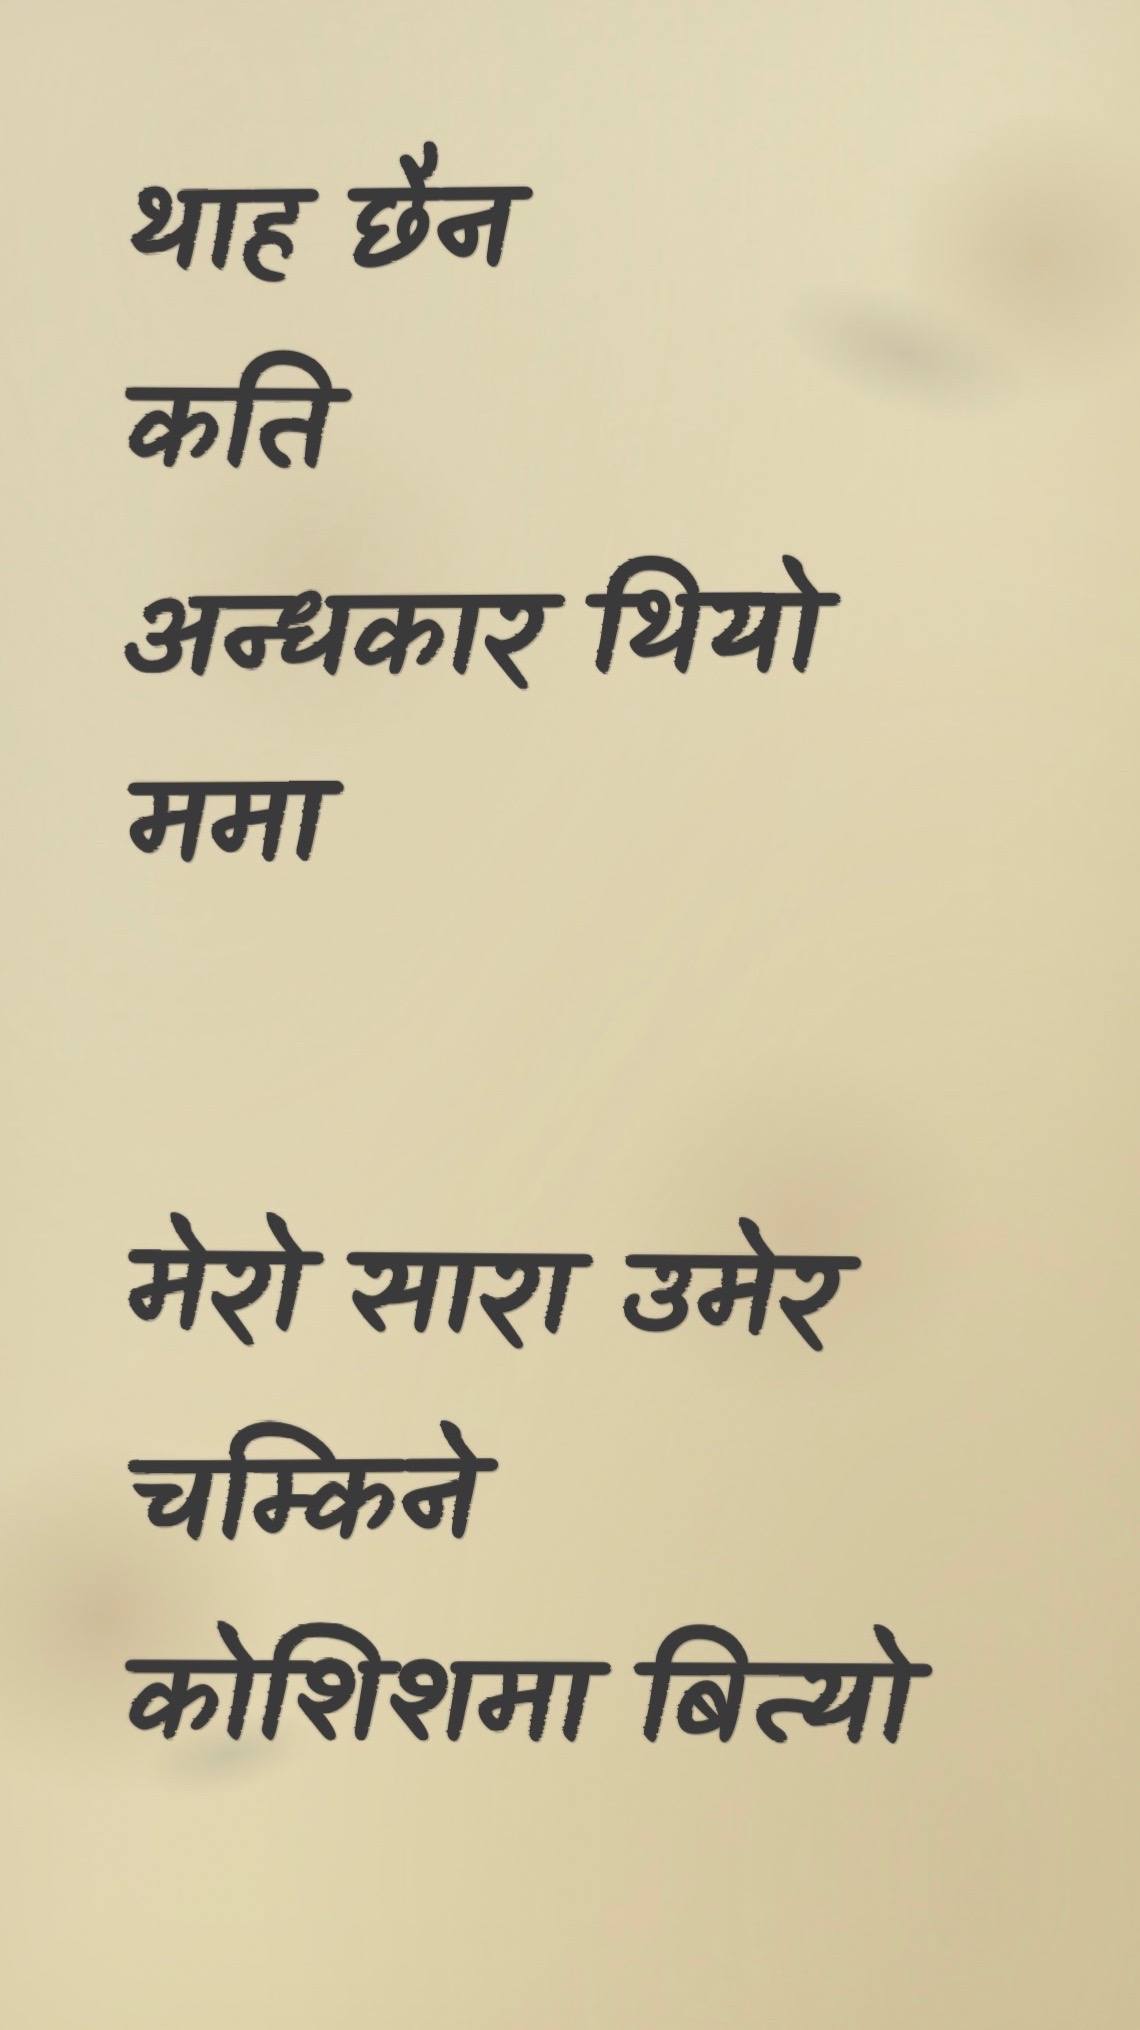 थाह छैन
कति
अन्धकार थियो
ममा
मेरो सारा उमेर
चम्किने
कोशिशमा बित्यो